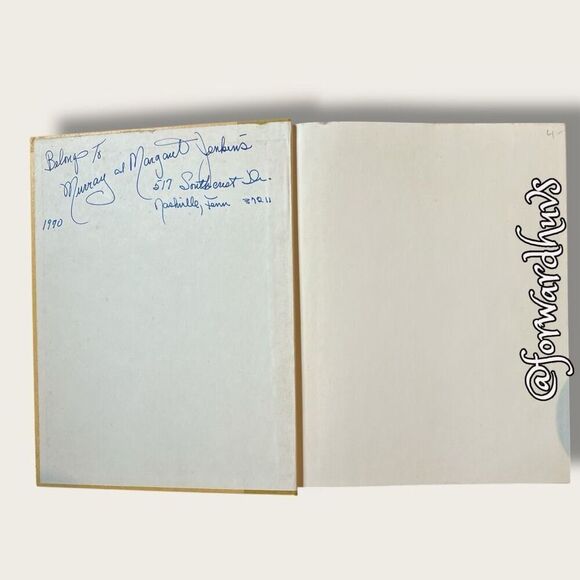 Belongs To
Murray and Margaret Jenkins
517 Southcrest Dr.
Nashville, Tenn 37211
1990
4-
@forwardhuvs